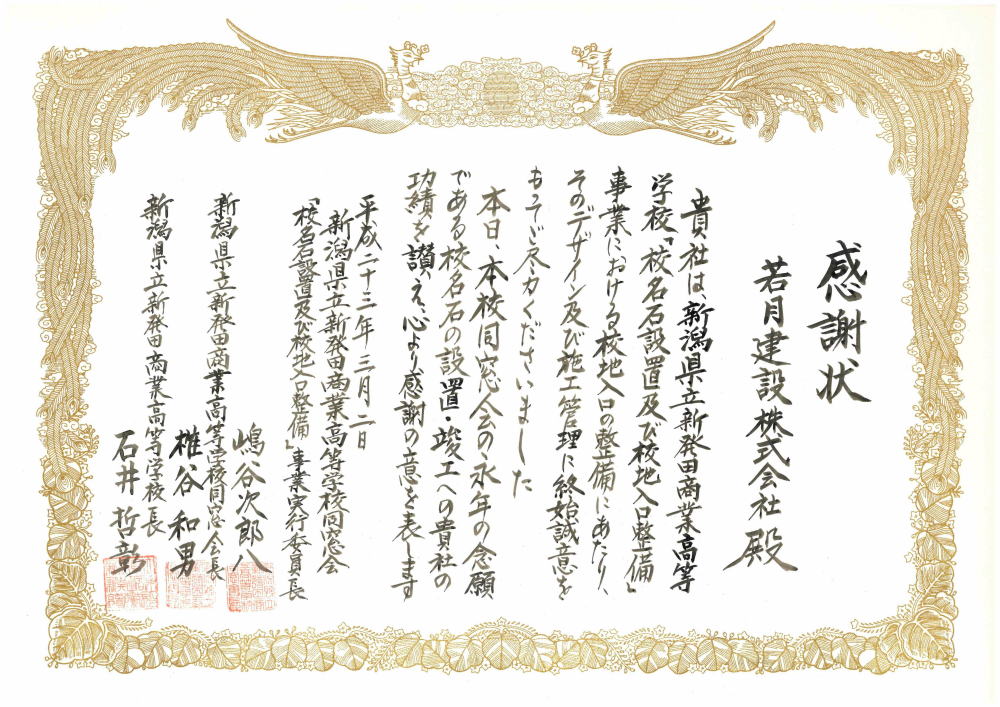 感謝状
若月建設株式会社 殿
貴社は、新潟県立新発田商業高等
学校「校名石設置及び校地入口整備」
事業における校地入口の整備にあたり、
そのデザイン及び施工管理に終始誠意を
もってご尽力くださいました
本日、本校同窓会の永年の念願
である校名石の設置・竣工への貴社の
功績を讃え、心より感謝の意を表します
平成二十三年三月二日
新潟県立新発田商業高等学校同窓会
「校名石設置及び校地入口整備」事業実行委員長
嶋谷次郎八
新潟県立新発田商業高等学校同窓会長
椎谷和男
新潟県立新発田商業高等学校長
石井哲彰